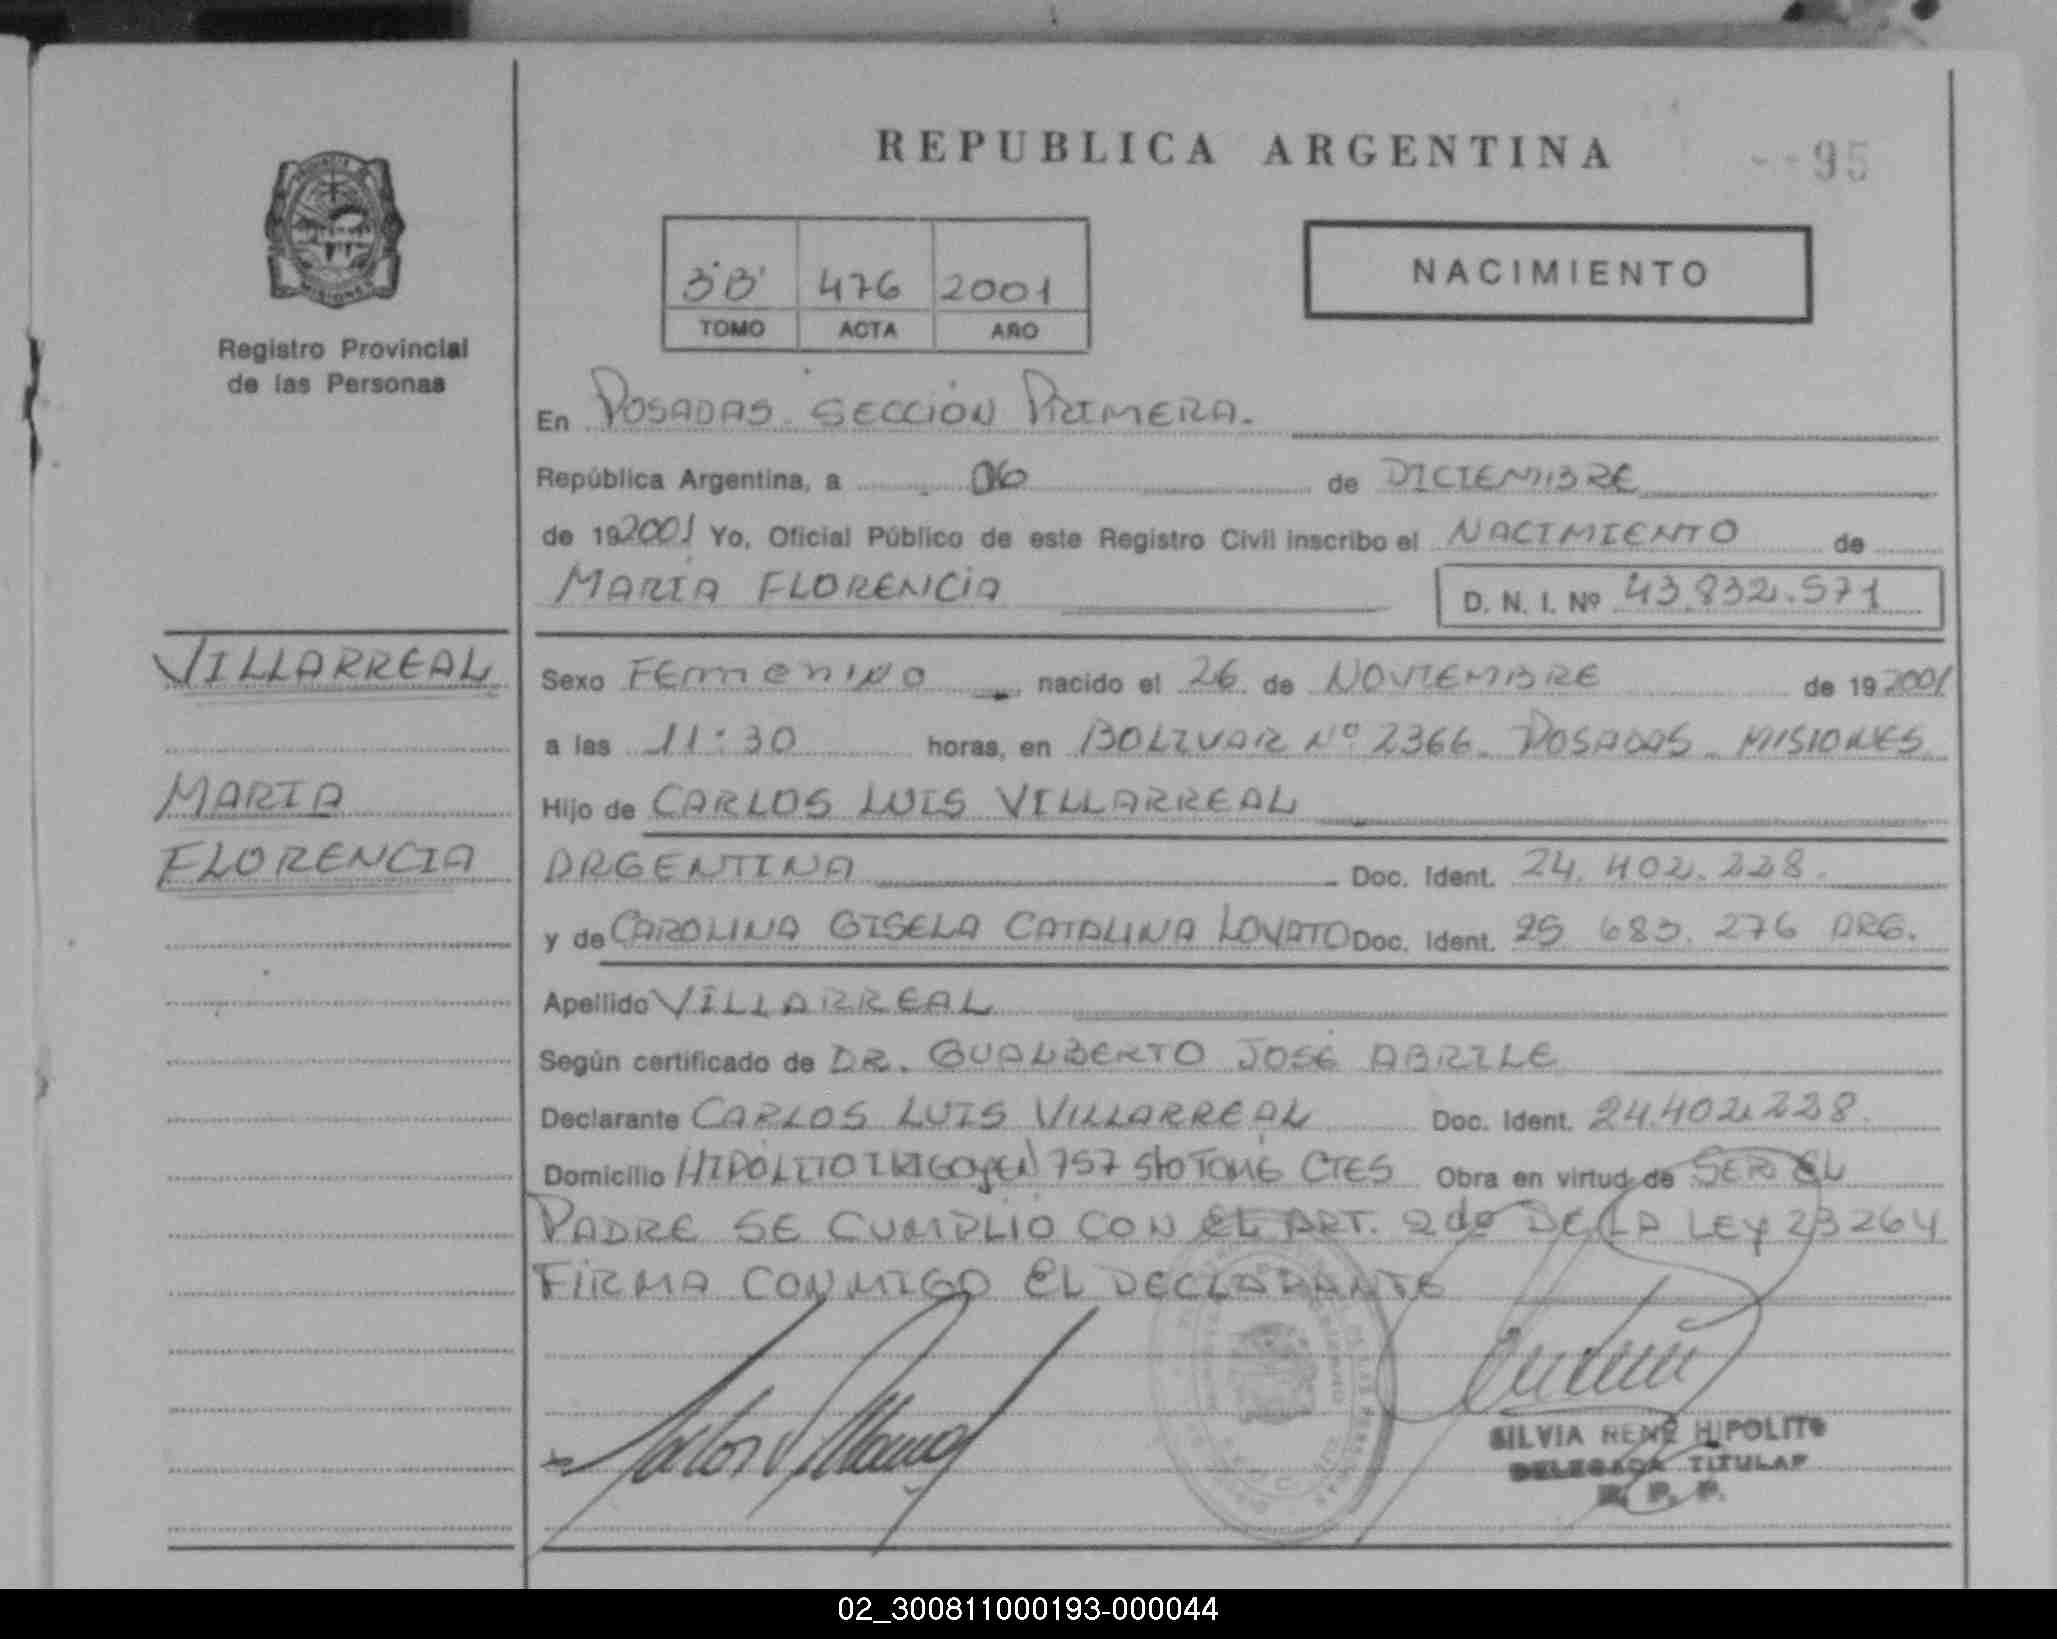 REPUBLICA ARGENTINA
95
3"B" 476 2001
TOMO ACTA AÑO
NACIMIENTO
Registro Provincial
de las Personas
En POSADAS. SECCIÓN PRIMERA.
República Argentina, a 06 de DICIEMBRE
de 192001 Yo, Oficial Público de este Registro Civil inscribo el NACIMIENTO de
MARIA FLORENCIA D. N. I. Nº 43.832.571
VILLARREAL
MARIA
FLORENCIA
Sexo FEmenino nacido el 26 de NOVIEMBRE de 19 2001
a las 11:30 horas, en BOLIVAR Nº 2366. POSADAS - MISIONES
Hijo de CARLOS LUIS VILLARREAL
ARGENTINA Doc. Ident. 24.402.228.
y de CAROLINA GISELA CATALINA LOVATO Doc. Ident. 25 683.276 ARG.
Apellido VILLARREAL
Según certificado de DR. GUALBERTO JOSÉ ABRILE
Declarante CARLOS LUIS VILLARREAL Doc. Ident. 24.402.228.
Domicilio HIPÓLITO IRIGOyEN 757 Sto TOMÉ CTES Obra en virtud de SER EL
PADRE SE CUMPLIO CON EL ART. 2do DE LA LEy 23264
FIRMA CONMIGO EL DECLARANTE
SILVIA RENÉ HIPOLITO
DELEGADA TITULAR
R. P. P.
02_300811000193-000044